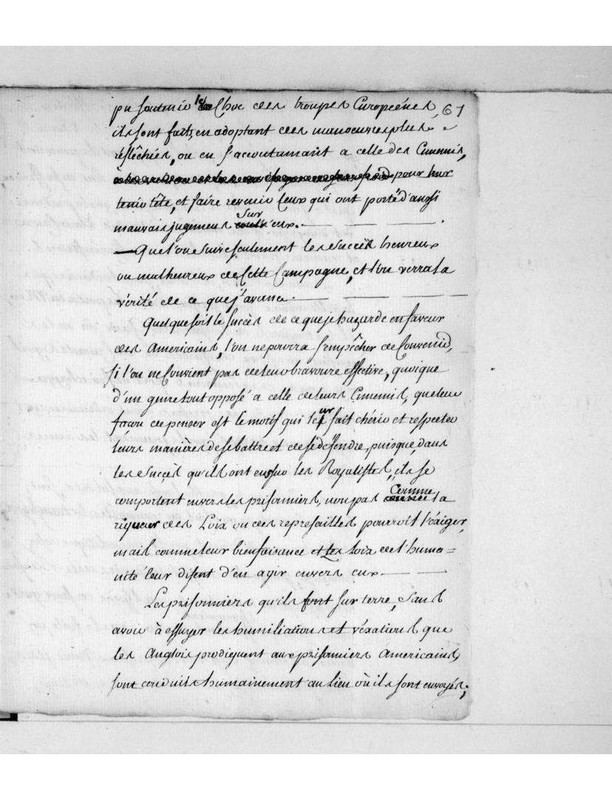 pu soutenir le choc des troupes Européenes, 67
ils sont faits, en adoptant des manoeuvres plus
réflechies, ou en s'accoutumant a celle des Ennemis,
pour leur
tenir tête, et faire revenir ceux qui ont porté d'aussi
mauvais jugemens sur eux. —
— Que l'on suive seulement les succès heureux
ou malheureux de cette Campagne, et l'on verra la
vérité de ce que j'avance. —
Quelque soit le succès de ce que je hazarde en faveur
des Americains, l'on ne pourra s'empêcher de convenir,
si l'on ne convient pas de leur bravoure effective, quoique
d'un genre tout opposé a celle de leurs Ennemis, que leur
façon de penser est le motif qui leur fait chérir et respecter
leurs manières de se battre et de se défendre, puisque, dans
les succès qu'ils ont eu sur les Royalistes, ils se
comportent envers les prisonniers, non pas comme la
rigueur des Loix ou des represailles pourroit l'exiger,
mais comme leur bienfaisance et les loix de l'huma=
nité leur disent d'en agir envers eux —
Les prisonniers qu'ils font sur terre, sans
avoir à essuyer les humiliations et vexations que
les Anglois prodiguent aux prisonniers Americains,
sont conduits humainement au lieu où ils sont envoyés;